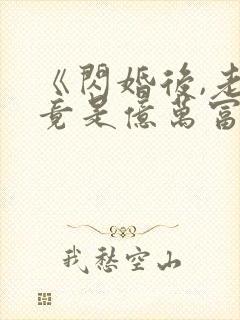 《閃婚後,老
竟是億萬富
我愁空山